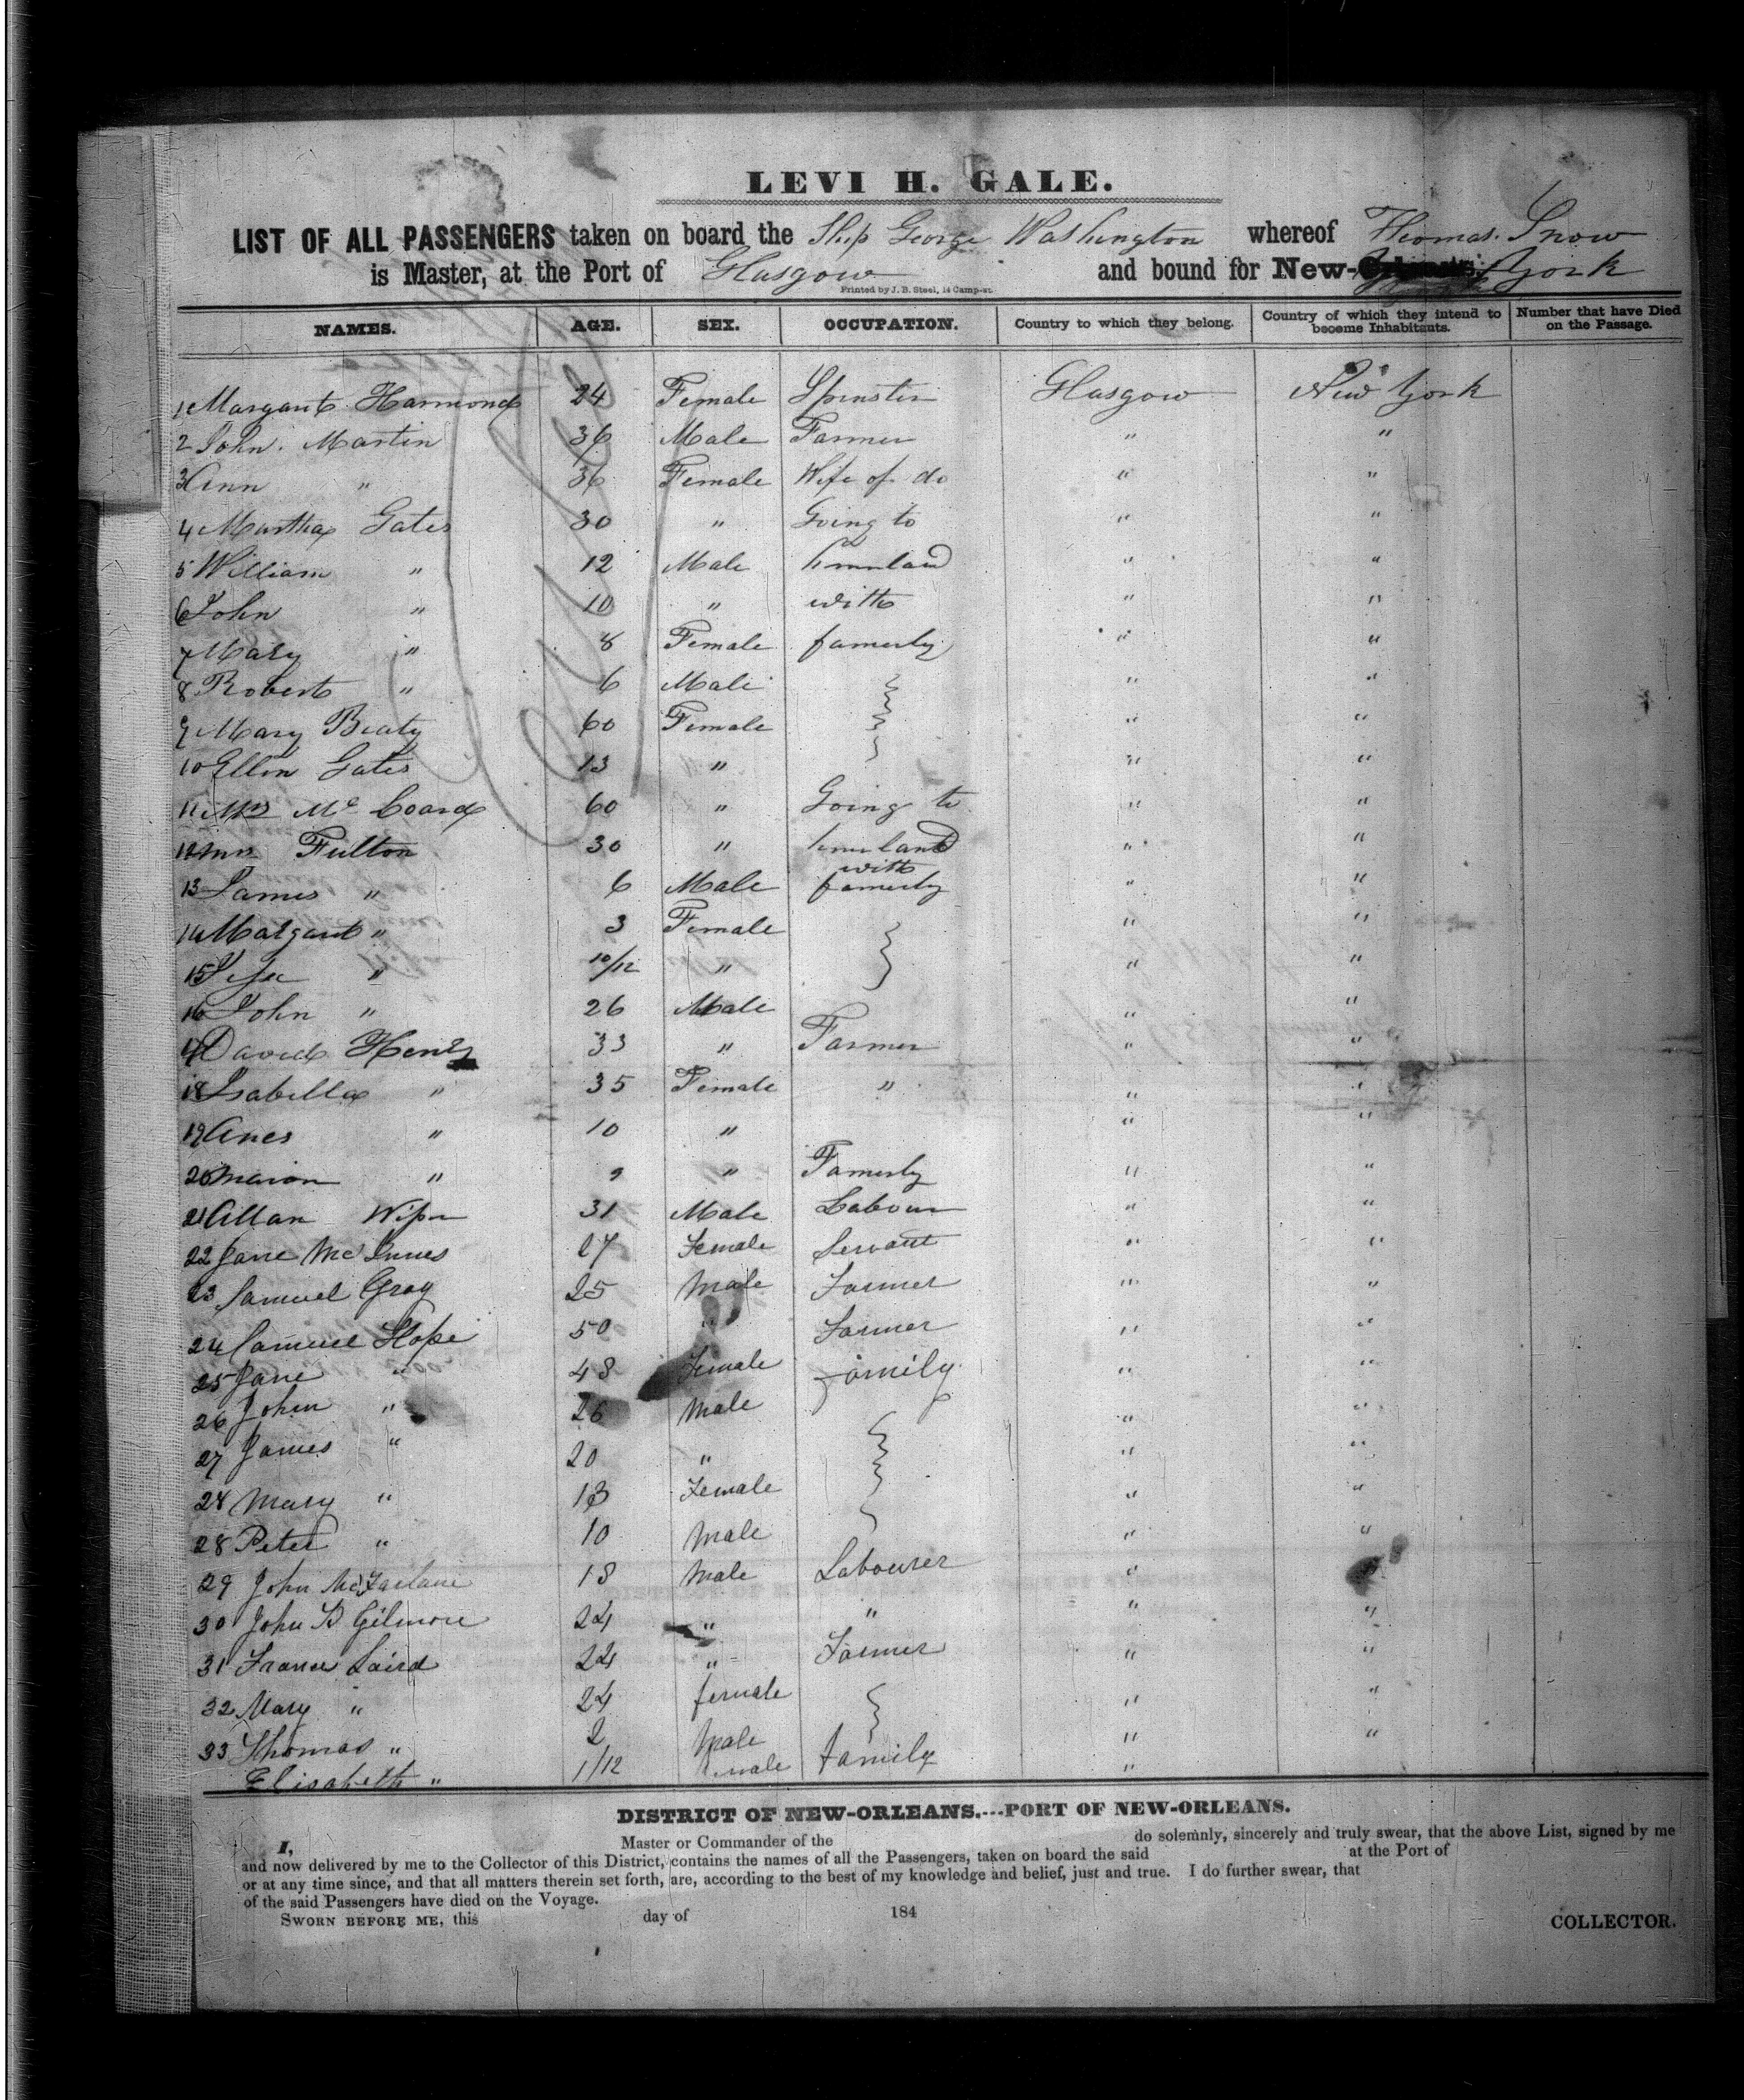 LEVI H. GALE.
LIST OF ALL PASSENGERS taken on board the Ship George Washington whereof Thomas. Snow
is Master, at the Port of Glasgow and bound for New- York
Printed by J. B. Steel, 14 Camp-st.
NAMES. AGE. SEX. OCCUPATION. Country to which they belong. Country of which they intend to become Inhabitants. Number that have Died on the Passage.
1 Margaret Hammond 24 Female Spinster Glasgow New York
2 John. Martin 36 Male Farmer " "
3 Ann " 36 Female Wife of do " "
4 Martha Gates 30 " Going to " "
5 William " 12 Male " "
6 John " 10 " with " "
7 Mary " 8 Female famerly " "
8 Robert " 6 Male " "
9 Mary Beaty 60 Female " "
10 Ellen Gates 13 " " "
11 Mrs Mc Coard 60 " Going to " "
12 Mrs Fulton 30 " " "
13 James " 6 Male with famerly " "
14 Margaret " 3 Female " "
15 " 10/12 " " "
16 John " 26 Male " "
17 David Henry 33 " Farmer " "
18 Isabella " 35 Female " " "
19 Anes " 10 " " "
20 Marion " " Famerly " "
21 Allan 31 Male Labour " "
22 Jane Mc Innes 27 Female Servant " "
23 Samuel Gray 25 Male Farmer " "
24 Samuel Hope 50 " Farmer " "
25 Jane " 48 Female Family " "
26 John " 26 Male " "
27 James " 20 " " "
28 Mary " 13 Female " "
28 Peter " 10 Male " "
29 John McFarlane 18 Male Labourer " "
30 John B Gilmore 24 " " " "
31 France Laird 22 " Farmer " "
32 Mary " 24 female " "
33 Thomas " 2 Male " "
Elisabeth " 1/12 Female family "
DISTRICT OF NEW-ORLEANS.---PORT OF NEW-ORLEANS.
I, Master or Commander of the do solemnly, sincerely and truly swear, that the above List, signed by me
and now delivered by me to the Collector of this District, contains the names of all the Passengers, taken on board the said at the Port of
or at any time since, and that all matters therein set forth, are, according to the best of my knowledge and belief, just and true. I do further swear, that
of the said Passengers have died on the Voyage.
SWORN BEFORE ME, this day of 184 COLLECTOR.